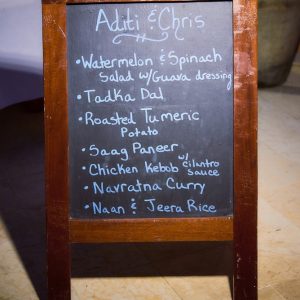 Aditi & Chris
• Watermelon & Spinach
Salad w/Guava dressing
• Tadka Dal
• Roasted Tumeric
Potato
• Saag Paneer
• Chicken Kebob w/ cilantro
sauce
• Navratna Curry
• Naan & Jeera Rice